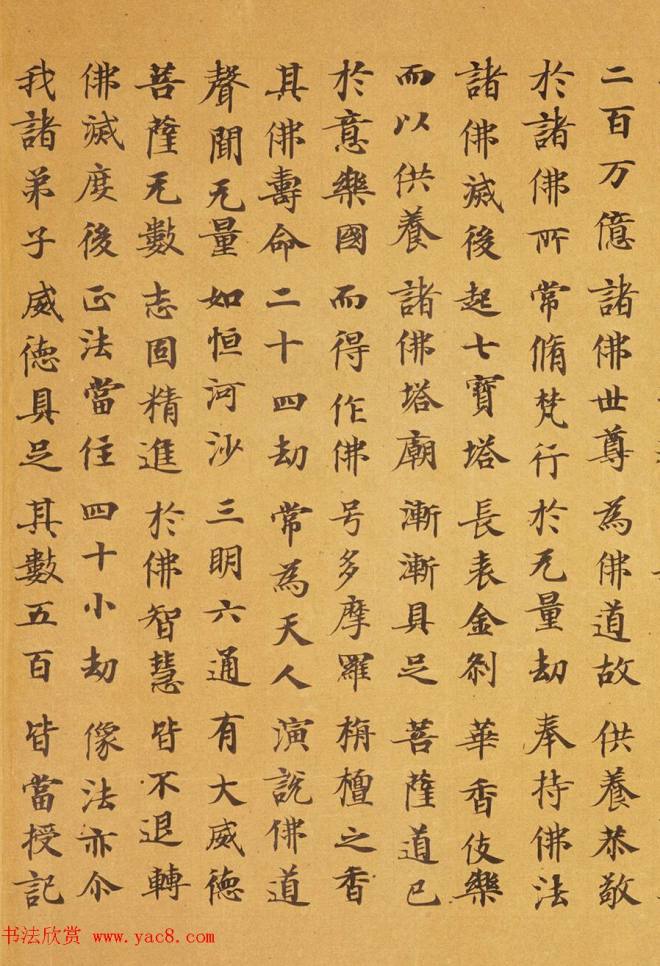 二百万億 諸佛世尊 為佛道故 供養恭敬
於諸佛所 常脩梵行 於无量劫 奉持佛法
諸佛滅後 起七寶塔 長表金刹 華香伎樂
而以供養 諸佛塔廟 漸漸具足 菩薩道已
於意樂國 而得作佛 号多摩羅 栴檀之香
其佛壽命 二十四劫 常為天人 演説佛道
聲聞无量 如恒河沙 三明六通 有大威德
菩薩无數 志固精進 於佛智慧 皆不退轉
佛滅度後 正法當住 四十小劫 像法亦尒
我諸弟子 威德具足 其數五百 皆當授記
书法欣赏 www.yac8.com